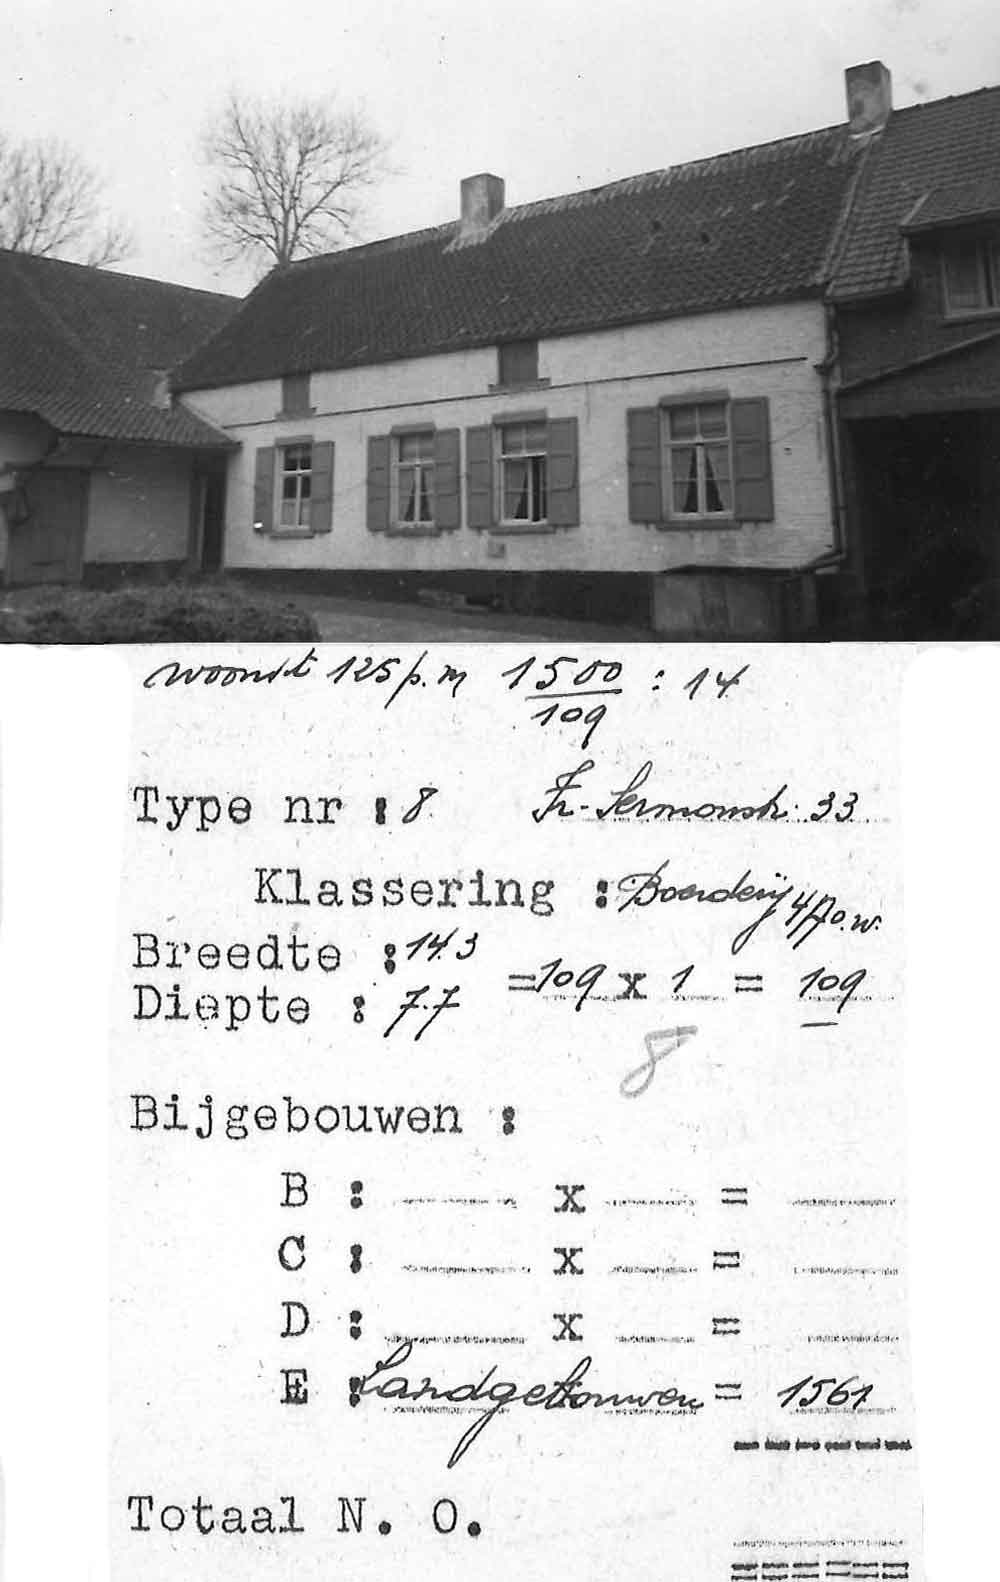 125 p.m 1500 : 14
109
Type nr : 8 Fr. Sermonstr. 33
Klassering : Boerderij 4/po.w.
Breedte : 14.3
=109 x 1 = 109
Diepte : 7.7
8
Bijgebouwen :
B : x =
C : x =
D : x =
E : Landgebouwen = 1561
Totaal N. O.